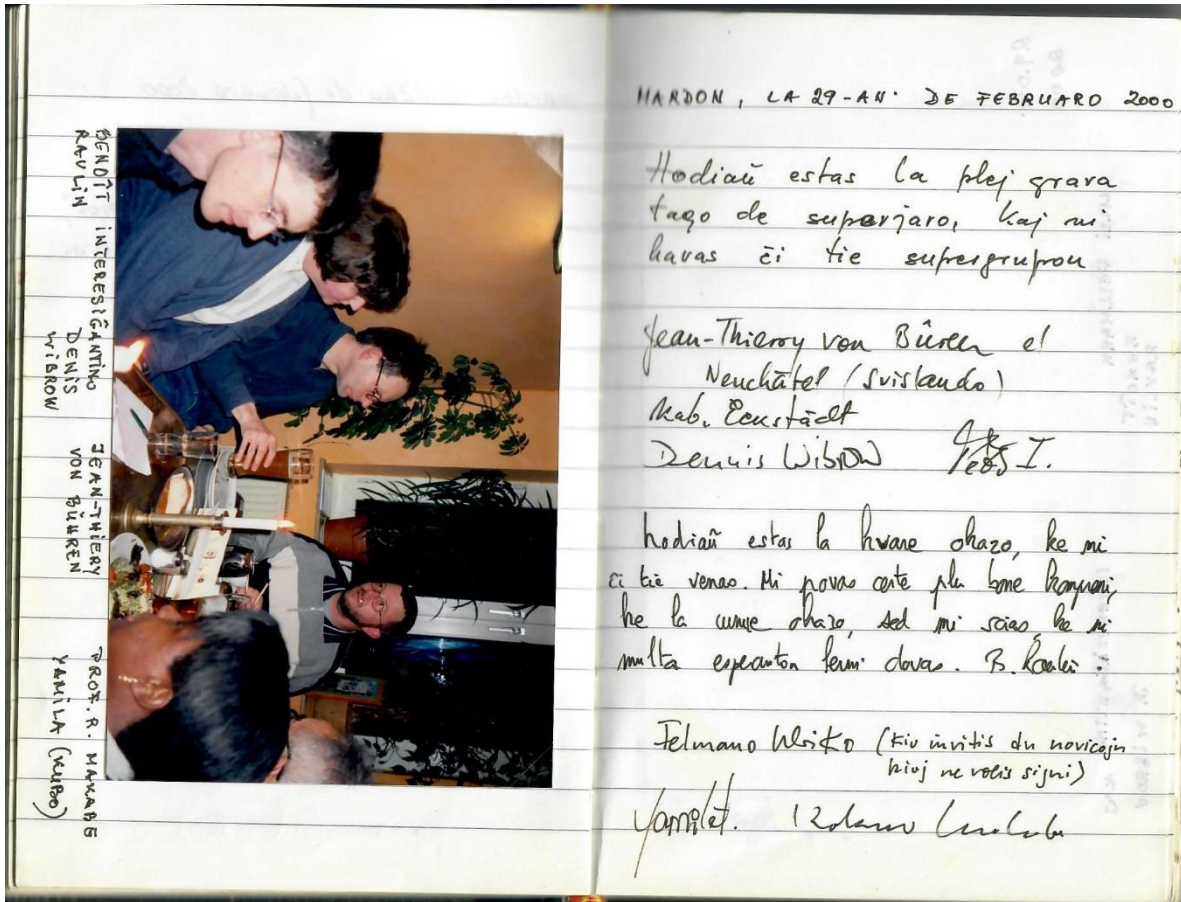 BENOÎT INTERESIĜANTINO JEAN-THIERY PROF. R. MAKABE
RAULIN DENIS WIBROW VON BÜHREN YAMILA (KUBO)
MARDON, LA 29-AN DE FEBRUARO 2000
Hodiaŭ estas la plej grava
tago de superjaro, kaj ni
havas ĉi tie supergrupon
Jean-Thierry von Büren el
Neuchâtel (Svislando)
Kab. Eckstädt
Dennis Wibrow I.
hodiaŭ estas la kvare okazo, ke mi
ĉi tie venas. Mi povas certe plu bone kompreni,
ke la unue okazo, sed mi scias, ke mi
multa esperanton lerni devas. B.
Felmano Ulriko (kiu invitis du novicojn
kiuj ne volis signi)
Yamilét.